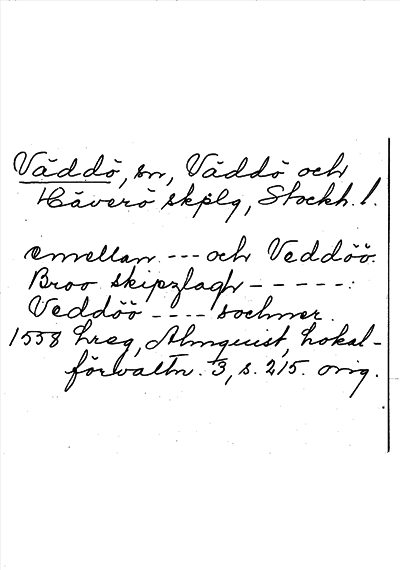 Väddö, sn, Väddö och
Häverö skplg, Stockh. l.
emellan --- och Veddöö.
Broo skipzlagh - - - - - :
Veddöö ---- sochner.
1558 hreg, Almquist, Lokal-
förvaltn. 3, s. 215. orig.